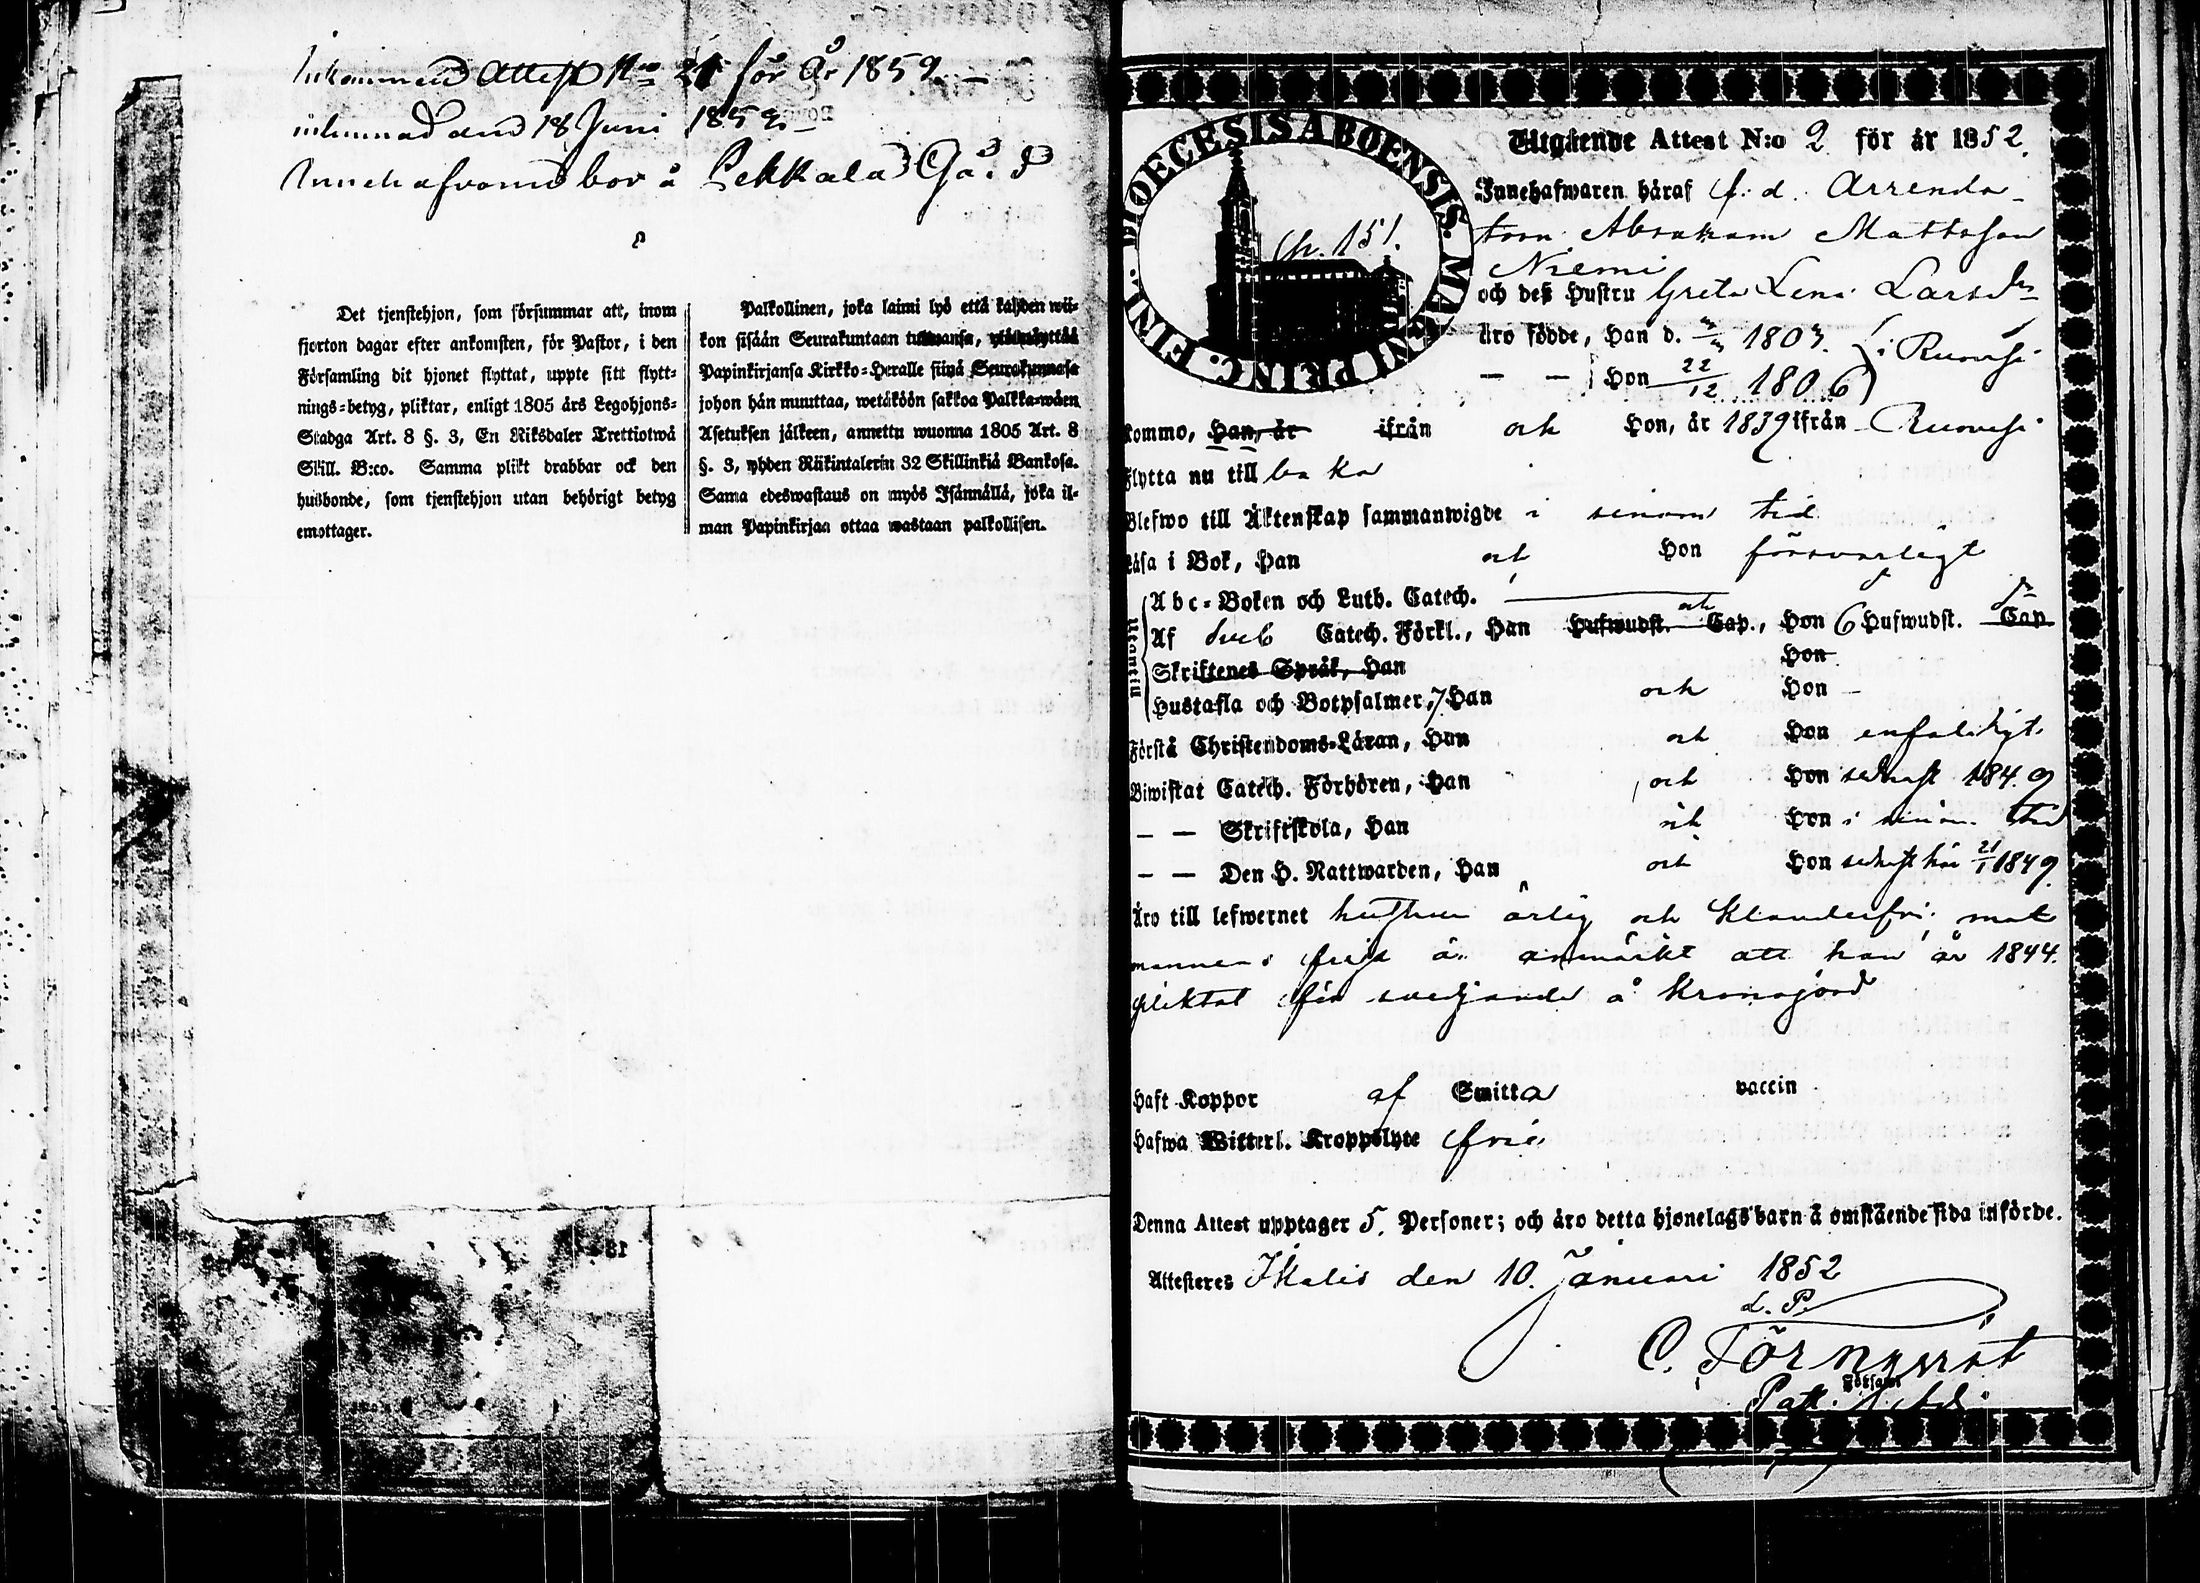 Inkommen Attest N:o 21 för År 1852.
inlemnad den 18 Juni 1852
Innehafvaren bor å Pekkala Gård
Det tjenstehjon, som försummar att, inom
fjorton dagar efter ankomsten, för Pastor, i den
Församling dit hjonet flyttat, uppte sitt flytt-
nings-betyg, pliktar, enligt 1805 års Legohjons-
Stadga Art. 8 §. 3, En Riksdaler Trettiotwå
Skill. B:co. Samma plikt drabbar ock den
husbonde, som tjenstehjon utan behörigt betyg
emottager.
Palkollinen, joka laimi lyö että kahden wii-
kon sisään Seurakuntaan tultuansa,
Papinkirjansa Kirkko-Heralle siinä Seurakunnasa
johon hän muuttaa, wetäköön sakkoa Palkka-wäen
Asetuksen jälkeen, annettu wuonna 1805 Art. 8
§. 3, yhden Riikintalerin 32 Skillinkiä Bankosa.
Sama edeswastaus on myös Isännällä, joka il-
man Papinkirjaa ottaa wastaan palkollisen.
DIOECESIS ABOENSIS. MAGNI PRINC. FINL.
p. 151.
Utgående Attest N:o 2 för år 1852.
Innehafwaren häraf f. d. Arrenda-
torn Abraham Mattsson
Niemi
och deß Hustru Greta Lena Larsdr
Äro födde, Han d. 1803. i Ruovesi
— — Hon 22/12 1806
Kommo, Han, år ifrån och Hon, år 1839 ifrån Ruovesi
Flytta nu till baka
Blefwo till Äktenskap sammanwigde i sinom tid
Läsa i Bok, Han och Hon försvarligt
Abc-Boken och Luth. Catech.
Af Sveb Catech. Förkl., Han Hufwudst. och Cap., Hon 6 Hufwudst. Cap
Skriftenes Språk, Han Hon
Hustafla och Botpsalmer, 7 Han och Hon —
Förstå Christendoms-Läran, Han och Hon enfaldigt.
Biwistat Catech. Förhören, Han och Hon sednast 1849
— — Skriftskola, Han och Hon i sinom tid
— — Den H. Nattwarden, Han och Hon sednast här 21/1 1849.
Äro till lefwernet hustrun ärlig och klanderfri; mot
mannens frejd är anmärkt att han år 1844.
pliktat för svedjande å kronojord
Haft Koppor af Smitta vaccin
Hafwa Witterl. Kroppslyte frie
Denna Attest upptager 5. Personer; och äro detta hjonelags barn å omstående sida införde.
Attesteres Ikalis den 10. Januari 1852
d. P.
C. Törnqvist